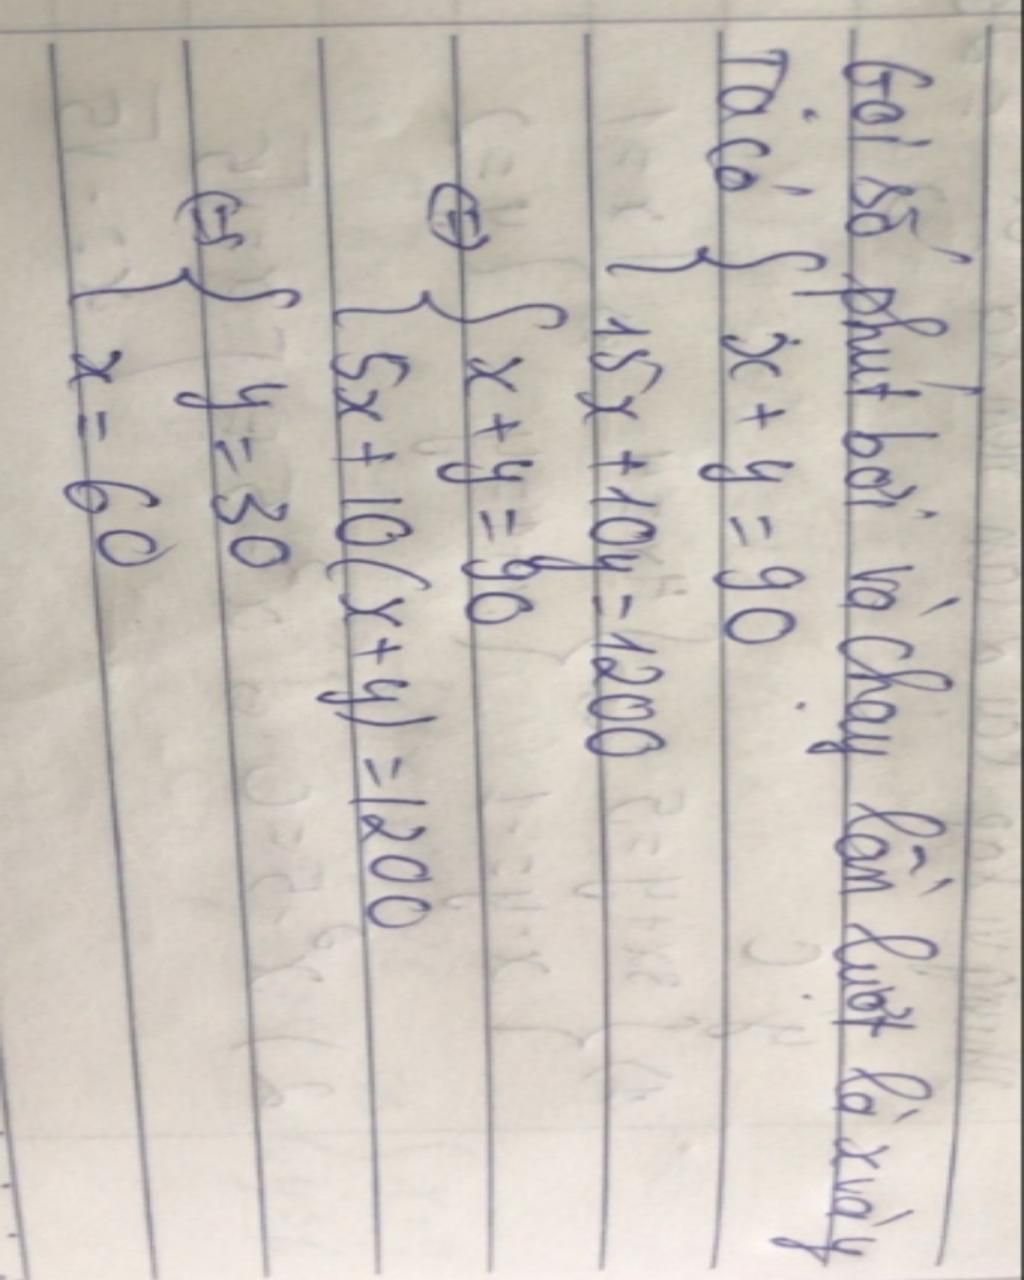 Gọi số phút bơi và chạy lần lượt là x và y
Ta có { x + y = 90
15x + 10y = 1200
{ x + y = 90
5x + 10(x + y) = 1200
{ y = 30
x = 60